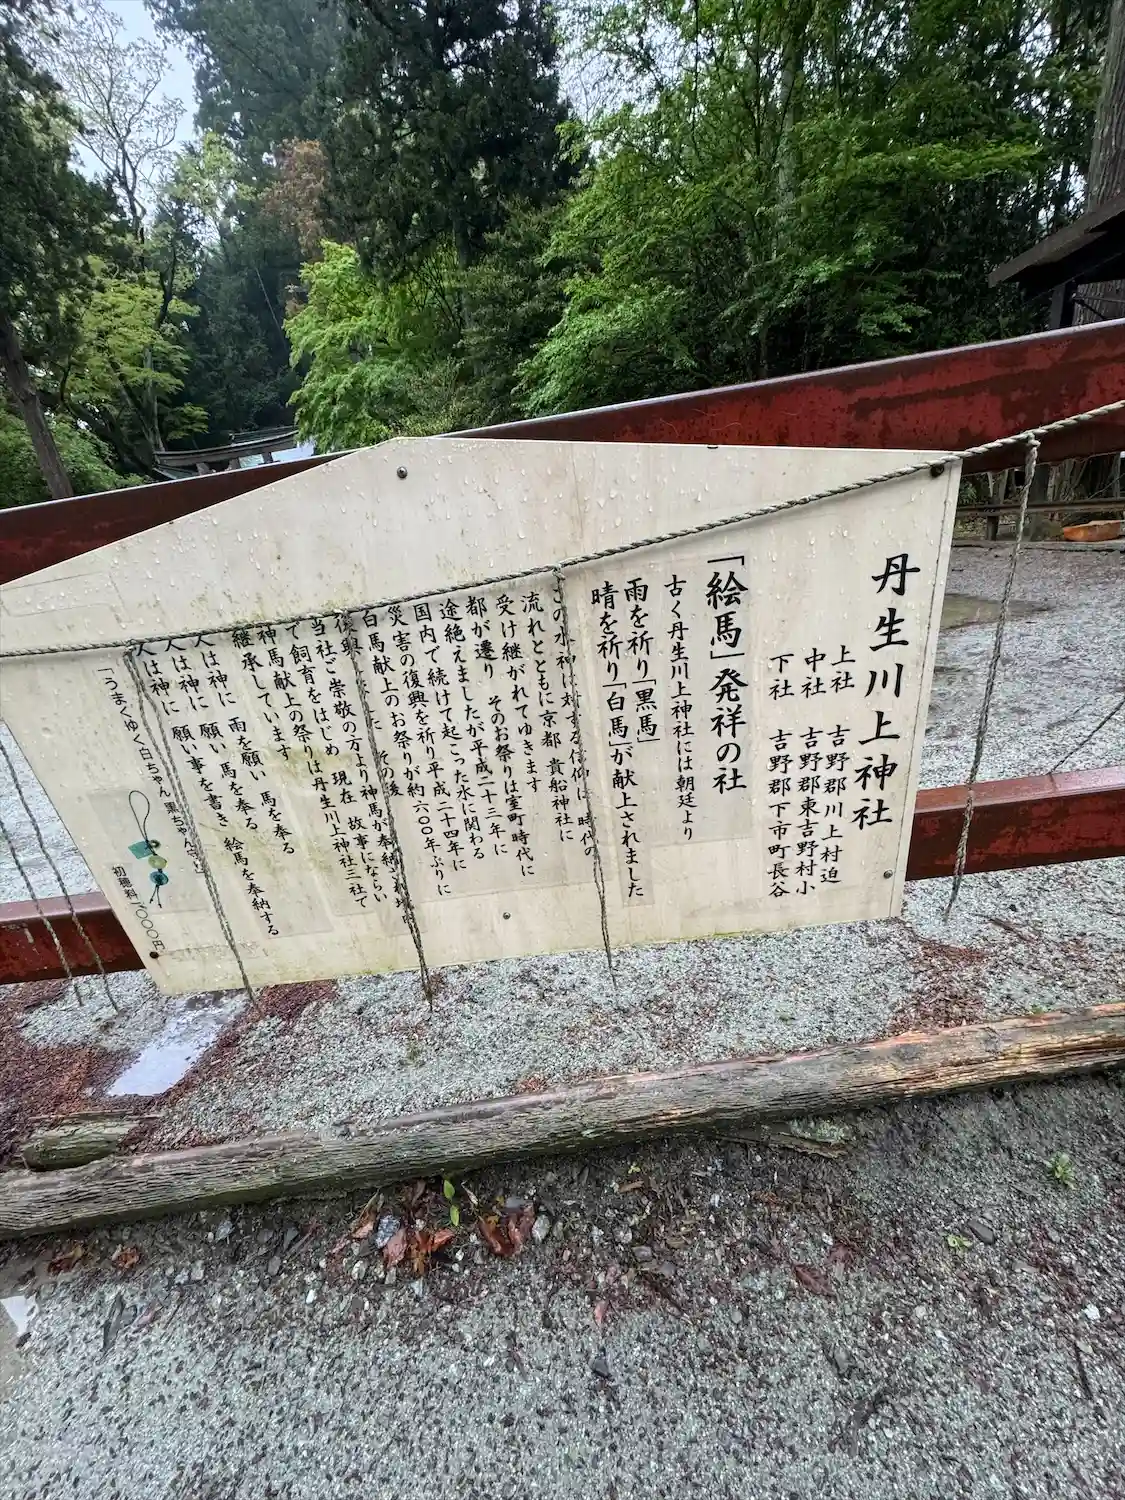 丹生川上神社
上社 吉野郡川上村迫
中社 吉野郡東吉野村小
下社 吉野郡下市町長谷
「絵馬」発祥の社
古く丹生川上神社には朝廷より
雨を祈り「黒馬」
晴を祈り「白馬」が献上されました
この水神に対する信仰は 時代の
流れとともに京都 貴船神社に
受け継がれてゆきます
都が遷り そのお祭りは室町時代に
途絶えましたが平成二十三年に
国内で続けて起こった水に関わる
災害の復興を祈り平成二十四年に
白馬献上のお祭りが約六〇〇年ぶりに
復興 した その後
当社ご崇敬の方より神馬が奉納され境内
で飼育をはじめ 現在 故事にならい
神馬献上の祭りは丹生川上神社三社で
継承しています
人は神に 雨を願い 馬を奉る
人は神に 願い 馬を奉る
人は神に 願い事を書き 絵馬を奉納する
「うまくゆく白ちゃん黒ちゃん守」
初穂料一〇〇〇円